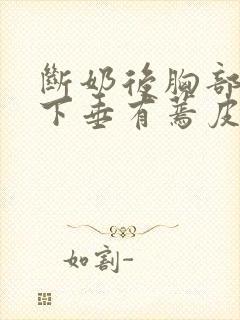 斷奶後胸部
下垂有蔫皮
如割-